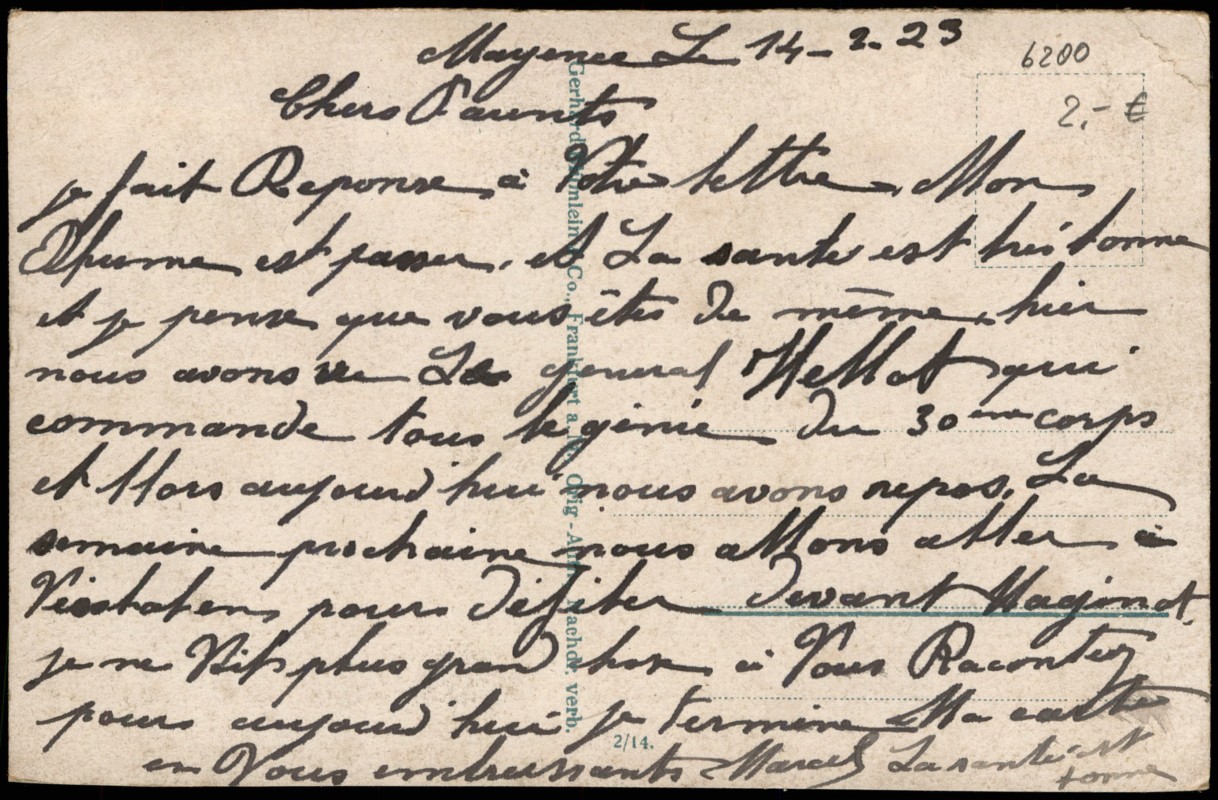 Mayence Le 14-2-23
6200
2,- €
Chers Parents
je fait Reponse à Votre lettre Mon
Rhume est passer, et La sante est très bonne
et je pense que vous êtes De même, hier
nous avons vu Le general Hellot qui
commande tous le génie Du 30ème corps
et Alors aujourd'hui nous avons repos. La
semaine prochaine nous allons aller à
pours Défiler Devant Maginot
je ne Vois plus grand chose à Vous Racontez
pours aujourd'hui je termine Ma carte
en Vous embrassants Marcel La santé est
bonne
Gerhard Blümlein & Co., Frankfurt a. M. Orig.-Aufn. Nachdr. verb.
2/14.